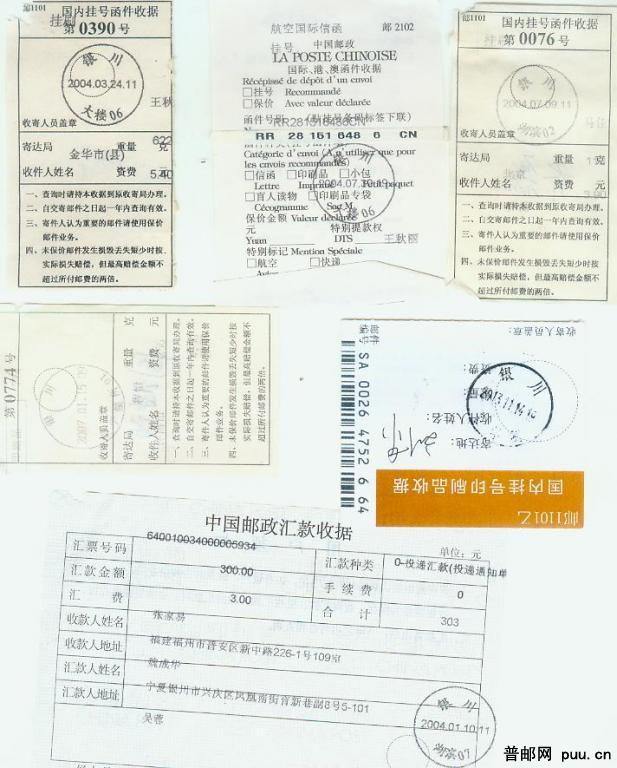 邮1101
国内挂号函件收据
挂刷
第 0390 号
银川
2004.03.24.11
大楼06
收寄人员盖章
寄达局
金华市(县)
重量
克
收件人姓名
资费
5.40
元
一、查询时请持本收据到原收寄局办理。
二、自交寄邮件之日起一年内查询有效。
三、寄件人认为重要的邮件请使用保价
邮件业务。
四、未保价邮件发生损毁丢失短少时按
实际损失赔偿，但最高赔偿金额不
超过所付邮费的两倍。
航空国际信函
邮 2102
挂号
中国邮政
LA POSTE CHINOISE
国际、港、澳函件收据
Récépissé de dépôt d'un envoi
□挂号 Recommandé
□保价 Avec valeur déclarée
函件号码 (贴挂号条码标签下联)
RR281516486CN
RR 28 151 648 6 CN
Catégorie d'envoi (A n'utiliser que pour
les envois recommandés)
□信函 □印刷品 □小包
Lettre Imprimé Petit paquet
2004.07.30.19
□盲人读物 □印刷品专袋
Cécogramme Sac M
保价金额 Valeur déclarée
元
特别提款权
Yuan
DTS
王秋丽
特别标记 Mention Spéciale
□航空 □快递
邮1101
国内挂号函件收据
第 0076 号
银川
2004.07.09.11
收寄人员盖章
寄达局
北京
重量
克
收件人姓名
资费
5.40
元
一、查询时请持本收据到原收寄局办理。
二、自交寄邮件之日起一年内查询有效。
三、寄件人认为重要的邮件请使用保价
邮件业务。
四、未保价邮件发生损毁丢失短少时按
实际损失赔偿，但最高赔偿金额不
超过所付邮费的两倍。
第 0774 号
银川
收寄人员盖章
寄达局
重量
克
收件人姓名
资费
元
一、查询时请持本收据到原收寄局办理。
二、自交寄邮件之日起一年内查询有效。
三、寄件人认为重要的邮件请使用保价
邮件业务。
四、未保价邮件发生损毁丢失短少时按
实际损失赔偿，但最高赔偿金额不
超过所付邮费的两倍。
邮1101乙
国内挂号印刷品收据
邮件号 SA 0026 4752 6 64
寄达地:
收件人姓名:
银川
收寄人员盖章:
中国邮政汇款收据
单位: 元
汇票号码
640010034000005934
汇款种类
0-投递汇款(投递通知单
汇款金额
300.00
手续费
0
汇费
3.00
合计
303
收款人姓名
张家易
收款人地址
福建福州市晋安区新中路226-1号109室
汇款人姓名
魏成华
汇款人地址
宁夏银川市兴庆区凤凰南街育新巷副8号5-101
吴蓉
银川
2004.01.10.11
普邮网 puu.cn